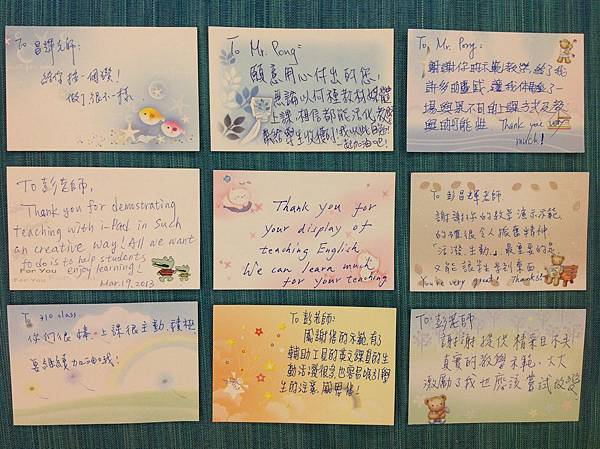 To 昌輝老師:
給你按一個讚!
做了很不一樣
To Mr. Pong:
願意用心付出的您,
無論以何種教材媒體
上課,相信都能活化教學
To Mr. Pong:
謝謝你的示範教學,給了我
許多的靈感,讓我体驗了一
場絕異不同的上課方式及教
Thank you very
much!
To 彭老師,
Thank you for demostrating
teaching with i-Pad in such
an creative way! All we want
to do is to help students
enjoy learning!
For You
For You
Mar.19.2013
Thank you for
your display of
teaching English.
We can learn much
for your teaching
To 彭昌輝老師
謝謝你的教學演示示範,
的確很令人振奮精神
「活潑、生動」,最重要的是
又能讓學生學到東西
You're very great! Thanks!
To 310 class
你們很棒,上課很主動、積極
要繼續加油哦!
To 彭老師:
感謝你的示範,有了
輔助工具的英文課真的生
動活潑很多,也容易吸引學
生的注意,感恩偌!
To: 彭老師
謝謝提供精采且不失
真實的教學示範,大大
激勵了我也應該嘗試改變